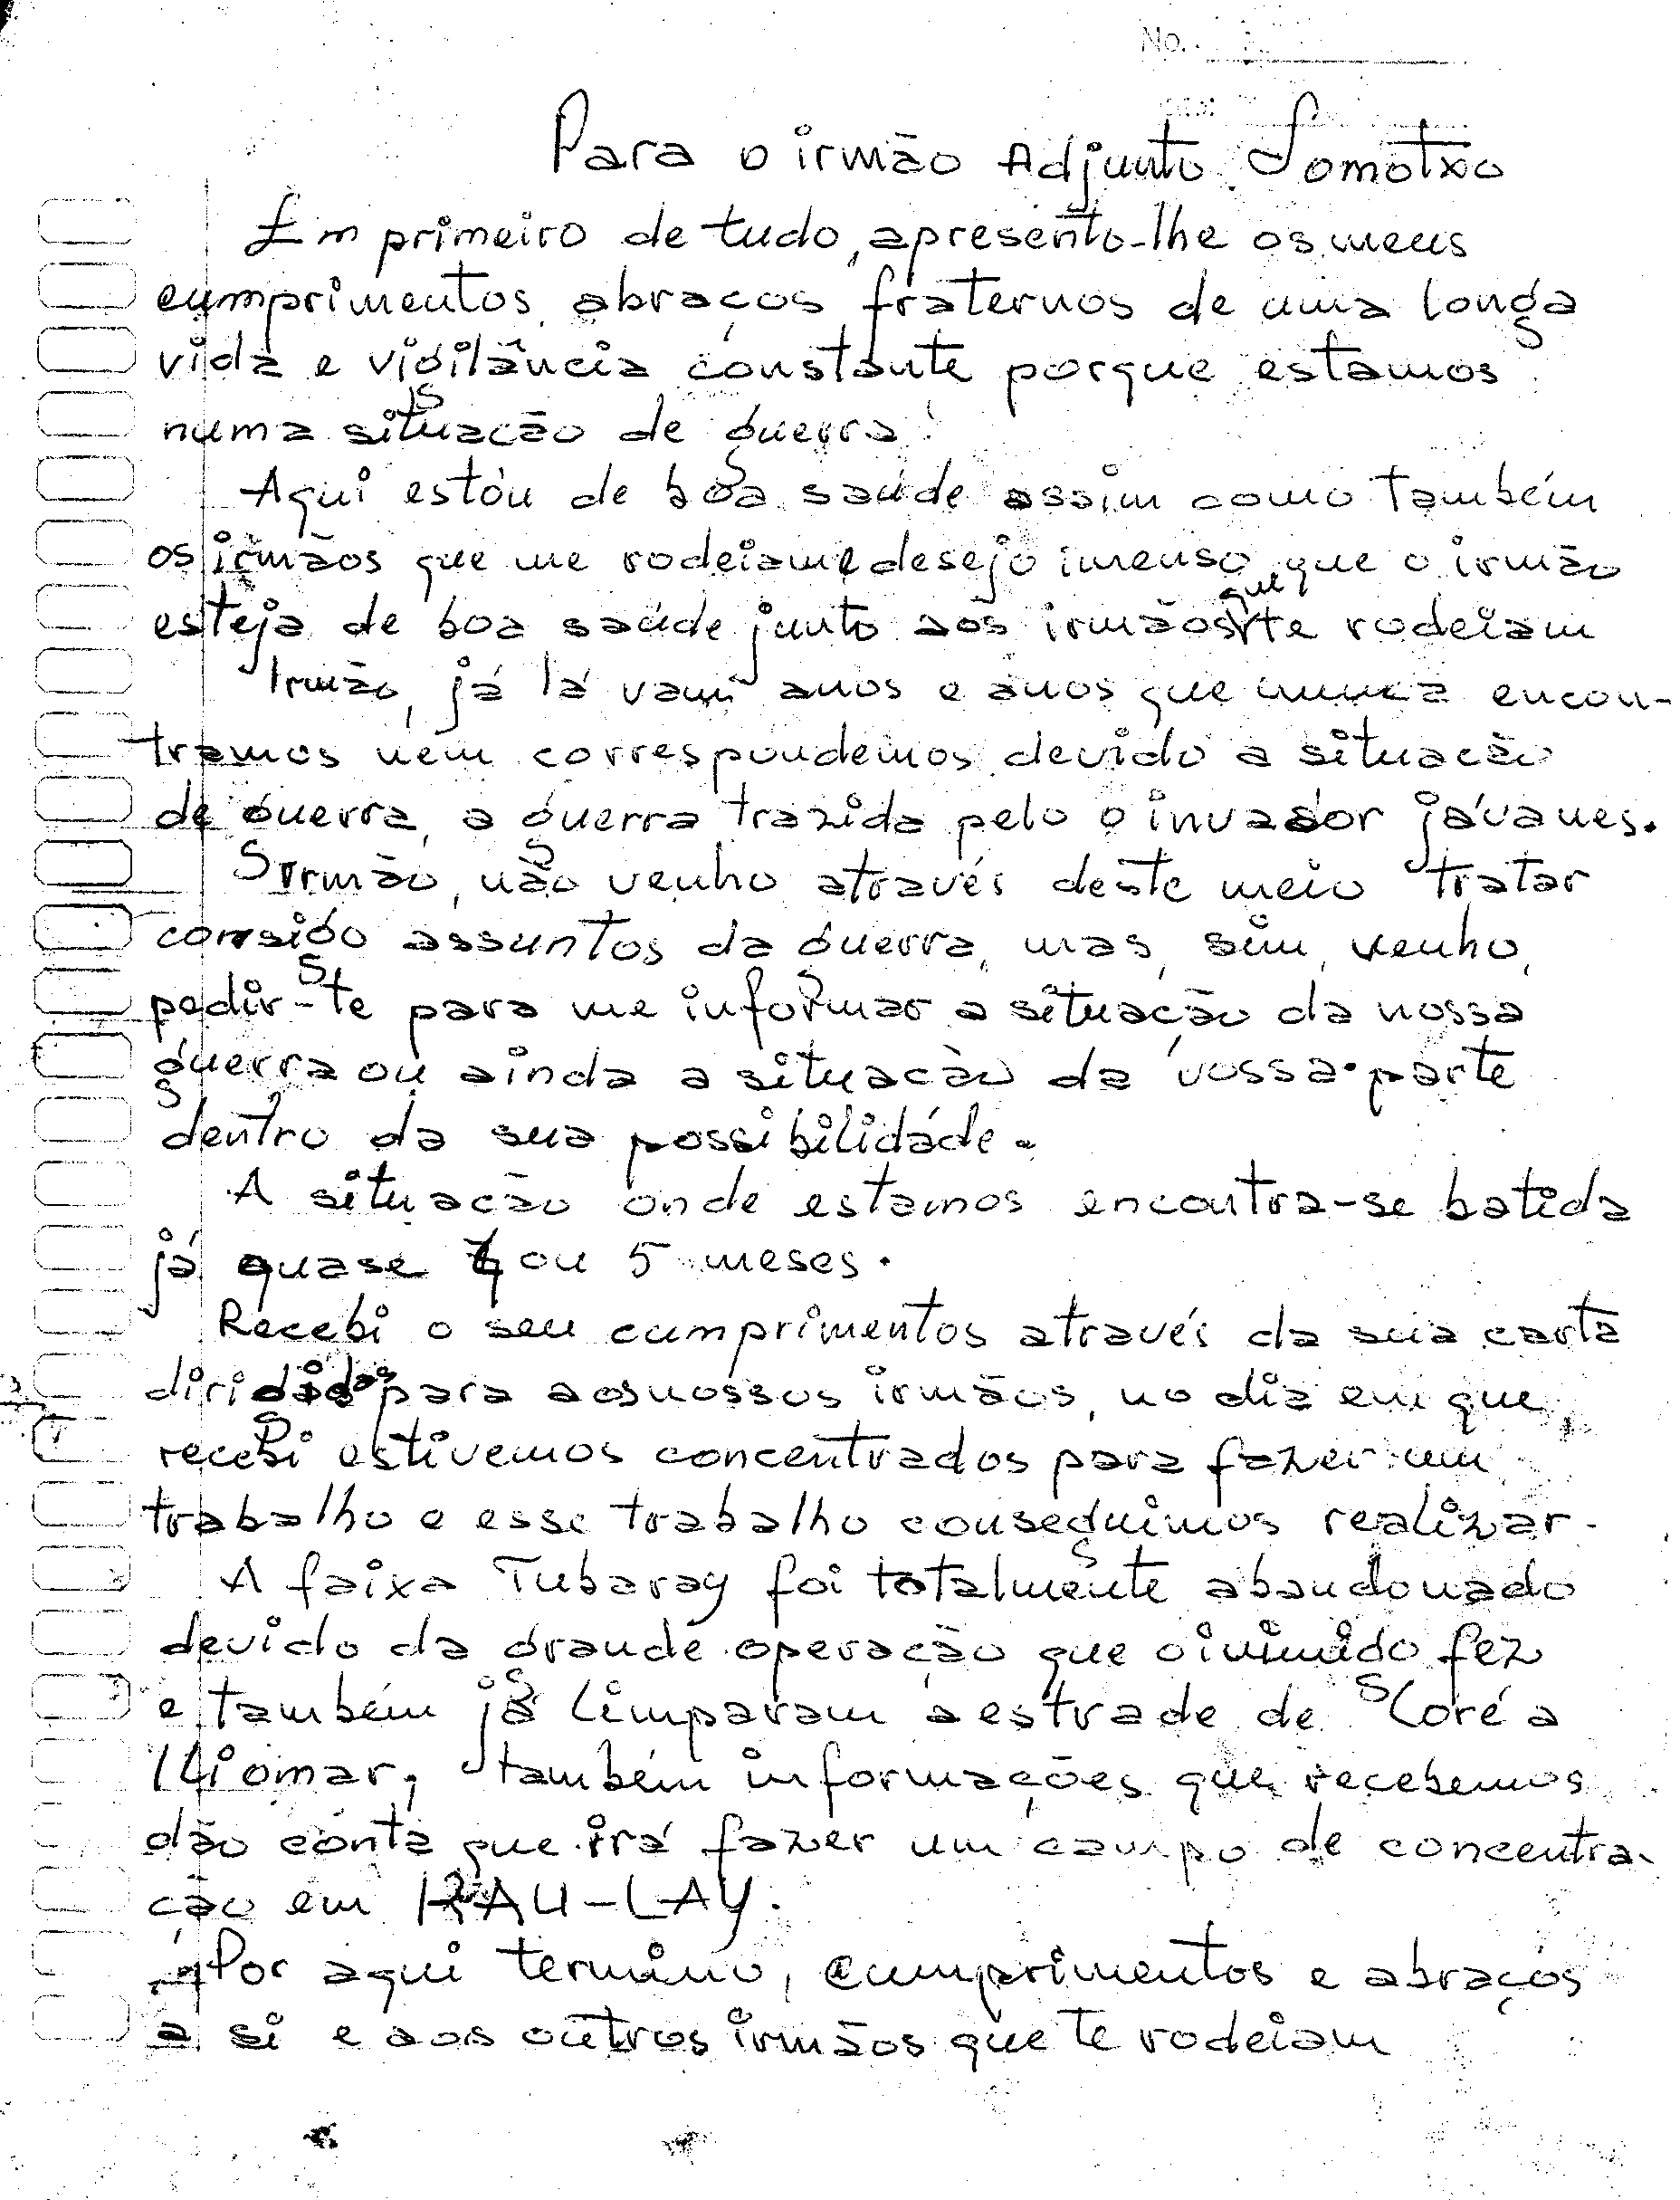 No.
Para o irmão Adjunto Somotxo
Em primeiro de tudo, apresento-lhe os meus
cumprimentos, abraços fraternos de uma longa
vida e vigilância constante porque estamos
numa situação de guerra.
Aqui estou de boa saúde assim como também
os irmãos que me rodeiam e desejo imenso que o irmão
esteja de boa saúde junto aos irmãos que te rodeiam
Irmão, já lá vam anos e anos que nunca encon-
tramos nem correspondemos devido a situação
de guerra, a guerra trazida pelo o invasor jávanes.
Irmão, não venho através deste meio tratar
consigo assuntos da guerra, mas, sim, venho,
pedir-te para me informar a situação da nossa
guerra ou ainda a situação da vossa parte
dentro da sua possibilidade.
A situação onde estamos encontra-se batida
já quase 4 ou 5 meses.
Recebi o seu cumprimentos através da sua carta
dirigidas para aos nossos irmãos, no dia em que,
recebi estivemos concentrados para fazer um
trabalho e esse trabalho conseguimos realizar.
A faixa Tubaray foi totalmente abandonado
devido da grande operação que o inimigo fez
e também já limparam a estrade de Loré a
Iliomar, também informações que recebemos
dão conta que irá fazer um campo de concentra-
ção em KAU-LAY.
Por aqui termino, cumprimentos e abraços
a si e aos outros irmãos que te rodeiam